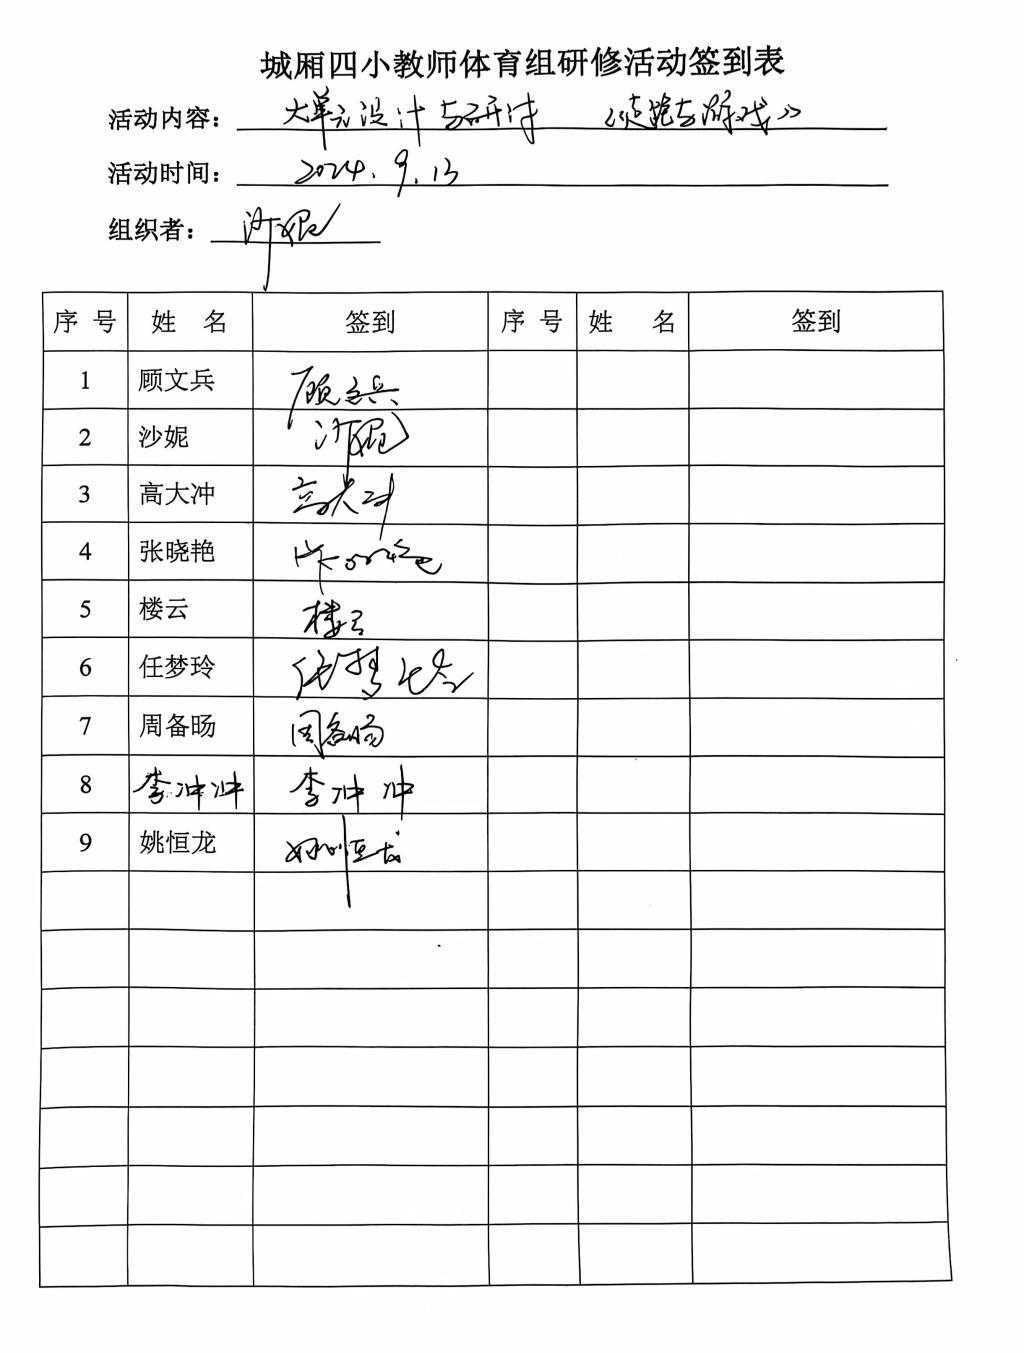 城厢四小教师体育组研修活动签到表
活动内容： 大单元设计与研讨 《走跑与游戏》
活动时间： 2024.9.13
组织者： 沙妮
序 号 姓 名 签到 序 号 姓 名 签到
1 顾文兵 顾文兵
2 沙妮 沙妮
3 高大冲 高大冲
4 张晓艳 张晓艳
5 楼云 楼云
6 任梦玲 任梦玲
7 周备旸 周备旸
8 李冲冲 李冲冲
9 姚恒龙 姚恒龙